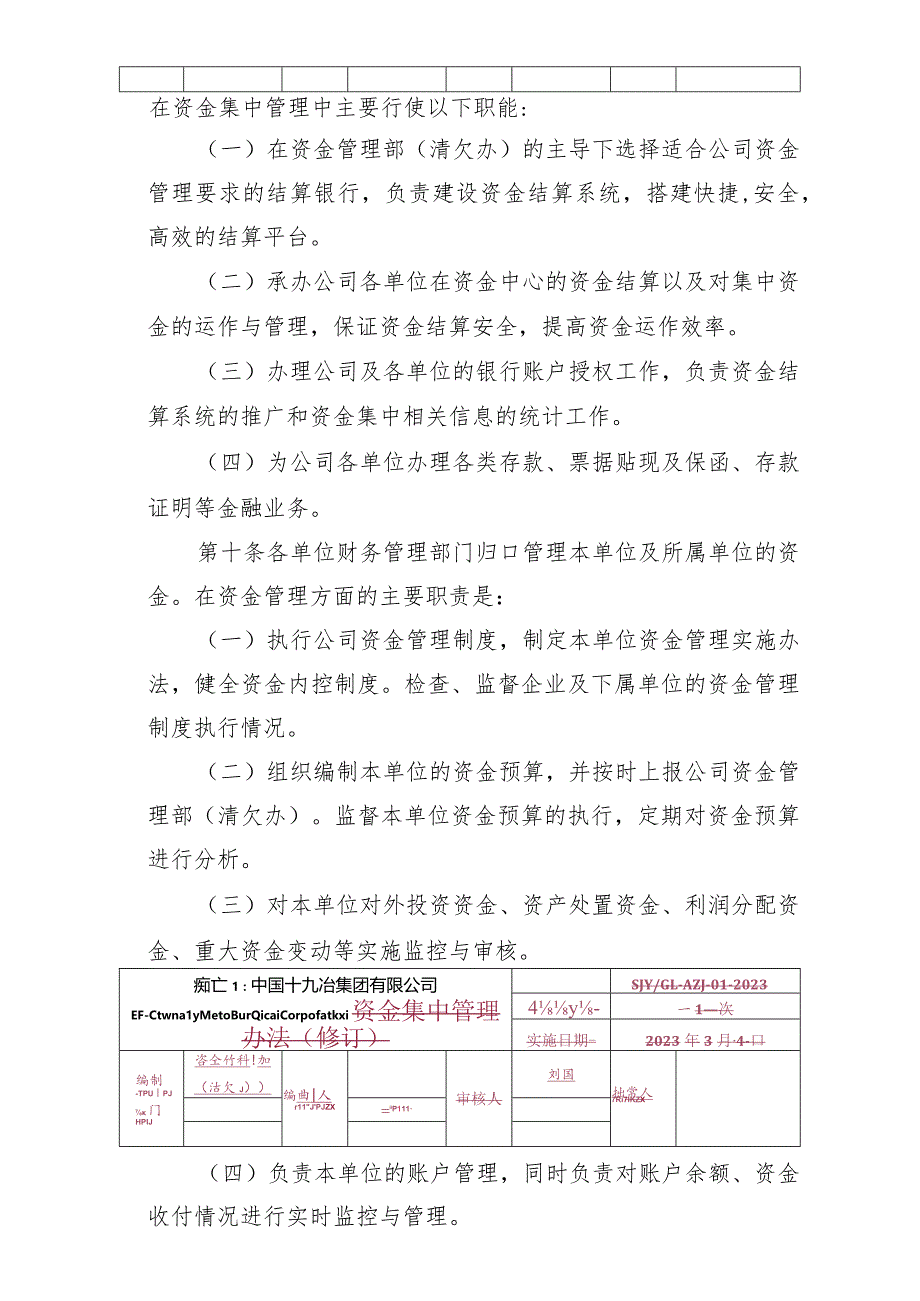 在资金集中管理中主要行使以下职能:
（一）在资金管理部（清欠办）的主导下选择适合公司资金
管理要求的结算银行，负责建设资金结算系统，搭建快捷,安全，
高效的结算平台。
（二）承办公司各单位在资金中心的资金结算以及对集中资
金的运作与管理，保证资金结算安全，提高资金运作效率。
（三）办理公司及各单位的银行账户授权工作，负责资金结
算系统的推广和资金集中相关信息的统计工作。
（四）为公司各单位办理各类存款、票据贴现及保函、存款
证明等金融业务。
第十条各单位财务管理部门归口管理本单位及所属单位的资
金。在资金管理方面的主要职责是：
（一）执行公司资金管理制度，制定本单位资金管理实施办
法，健全资金内控制度。检查、监督企业及下属单位的资金管理
制度执行情况。
（二）组织编制本单位的资金预算，并按时上报公司资金管
理部（清欠办）。监督本单位资金预算的执行，定期对资金预算
进行分析。
（三）对本单位对外投资资金、资产处置资金、利润分配资
金、重大资金变动等实施监控与审核。
痴亡1:中国十九冶集团有限公司
EF-Ctwna1yMetoBurQicaiCorpofatkxi资金集中管理
办法（修订）
4⅛⅛y⅛-
实施日期=
SJY/GL-AZJ-01-2023
一1—次
2023年3月4-口
编制
-TPU｜PJ
⅞x门
HPIJ
咨全竹科!加
（沽欠J））
编曲|人
r11"J'PJZX
=ᵑP111-
审核人
刘国
（四）负责本单位的账户管理，同时负责对账户余额、资金
收付情况进行实时监控与管理。